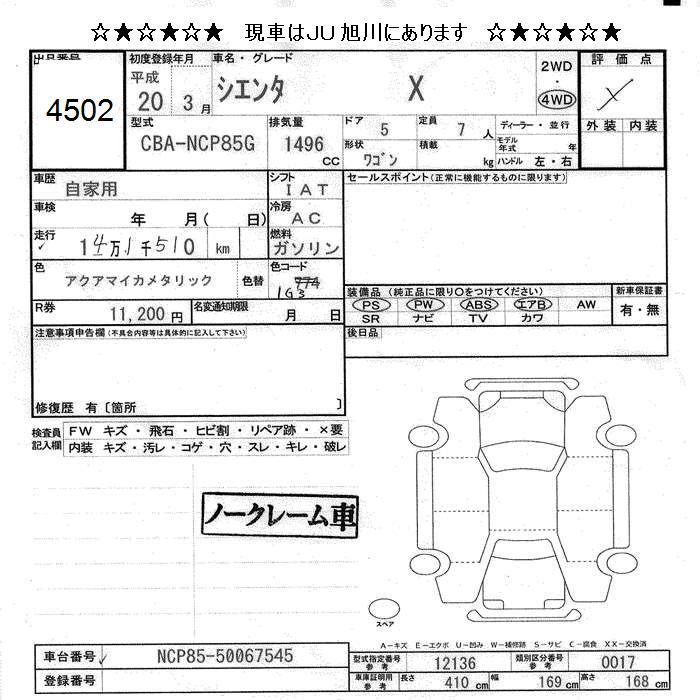 ☆★☆★☆★☆ 現車はJU旭川にあります ☆★☆★☆★☆
出品番号
4502
初度登録年月
平成
20 3 月
車名・グレード
シエンタ X
2WD
・
4WD
評価点
外装 内装
型式
CBA-NCP85G
排気量
1496
CC
ドア
5
定員
7 人
ディーラー・並行
形状
ワゴン
積載
kg
モデル年式
年
ハンドル 左・右
車歴
自家用
シフト
IAT
セールスポイント(正常に機能するものに限ります)
車検
年 月( 日)
冷房
AC
走行
✓
14万1千510 km
燃料
ガソリン
色
アクアマイカメタリック
色替
色コード
774
1G3
装備品 (純正品に限り○をつけてください)
PS PW ABS エアB AW
SR ナビ TV カワ
新車保証書
有・無
R券
11,200 円
名変通知期限
月 日
後日品
注意事項申告欄(不具合内容等は具体的に記入して下さい)
修復歴 有〔箇所 〕
検査員記入欄
FW キズ・飛石・ヒビ割・リペア跡・×要
内装 キズ・汚レ・コゲ・穴・スレ・キレ・破レ
ノークレーム車
スペア
A-キズ E-エクボ U-凹み W-補修跡 S-サビ C-腐食 XX-交換済
車台番号
NCP85-50067545
登録番号
型式指定番号
参考
12136
類別区分番号
参考
0017
車庫証明用
参考
長さ
410 cm
幅
169 cm
高さ
168 cm